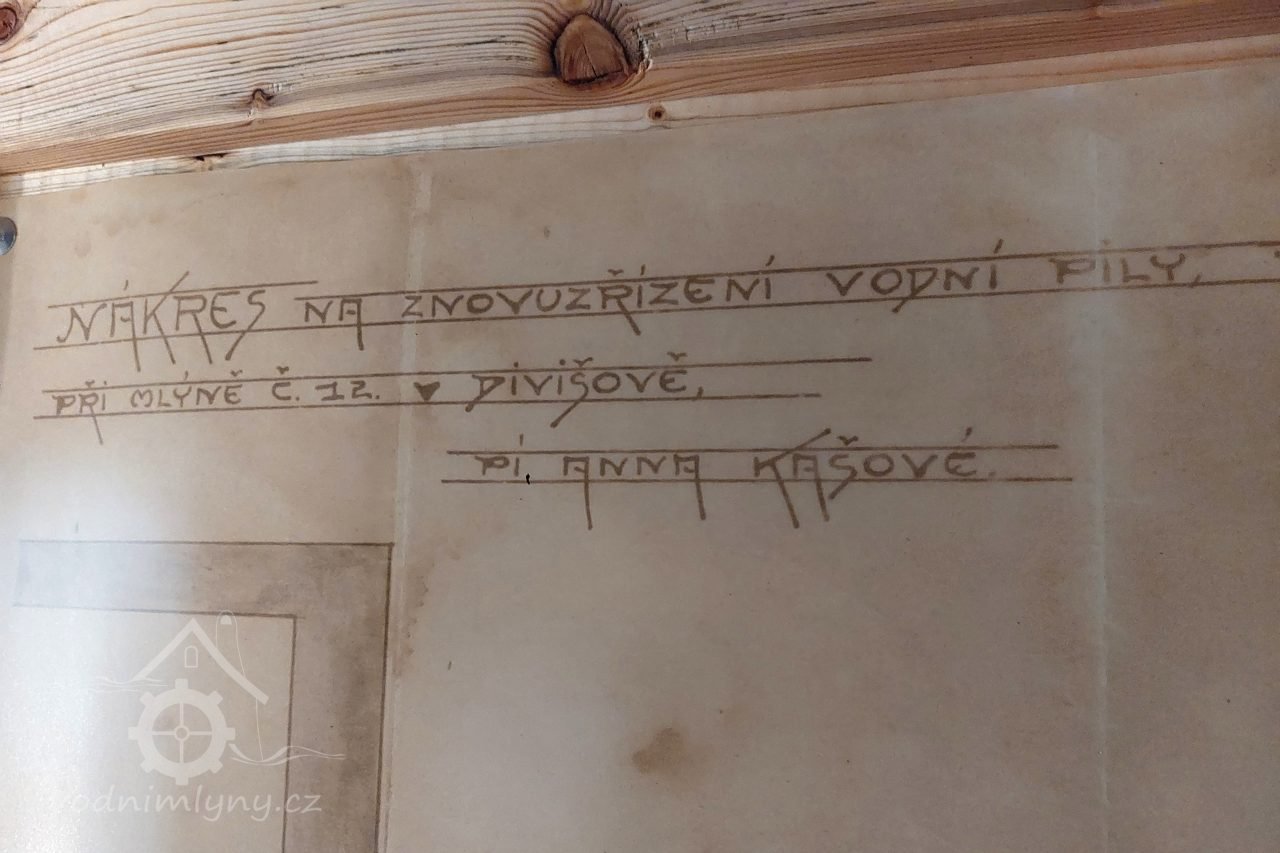 NÁKRES NA ZNOVUZŘÍZENÍ VODNÍ PILY,
PŘI MLÝNĚ Č. 12. V DIVIŠOVĚ,
PÍ, ANNA KÁŠOVÉ.
vodnimlyny.cz